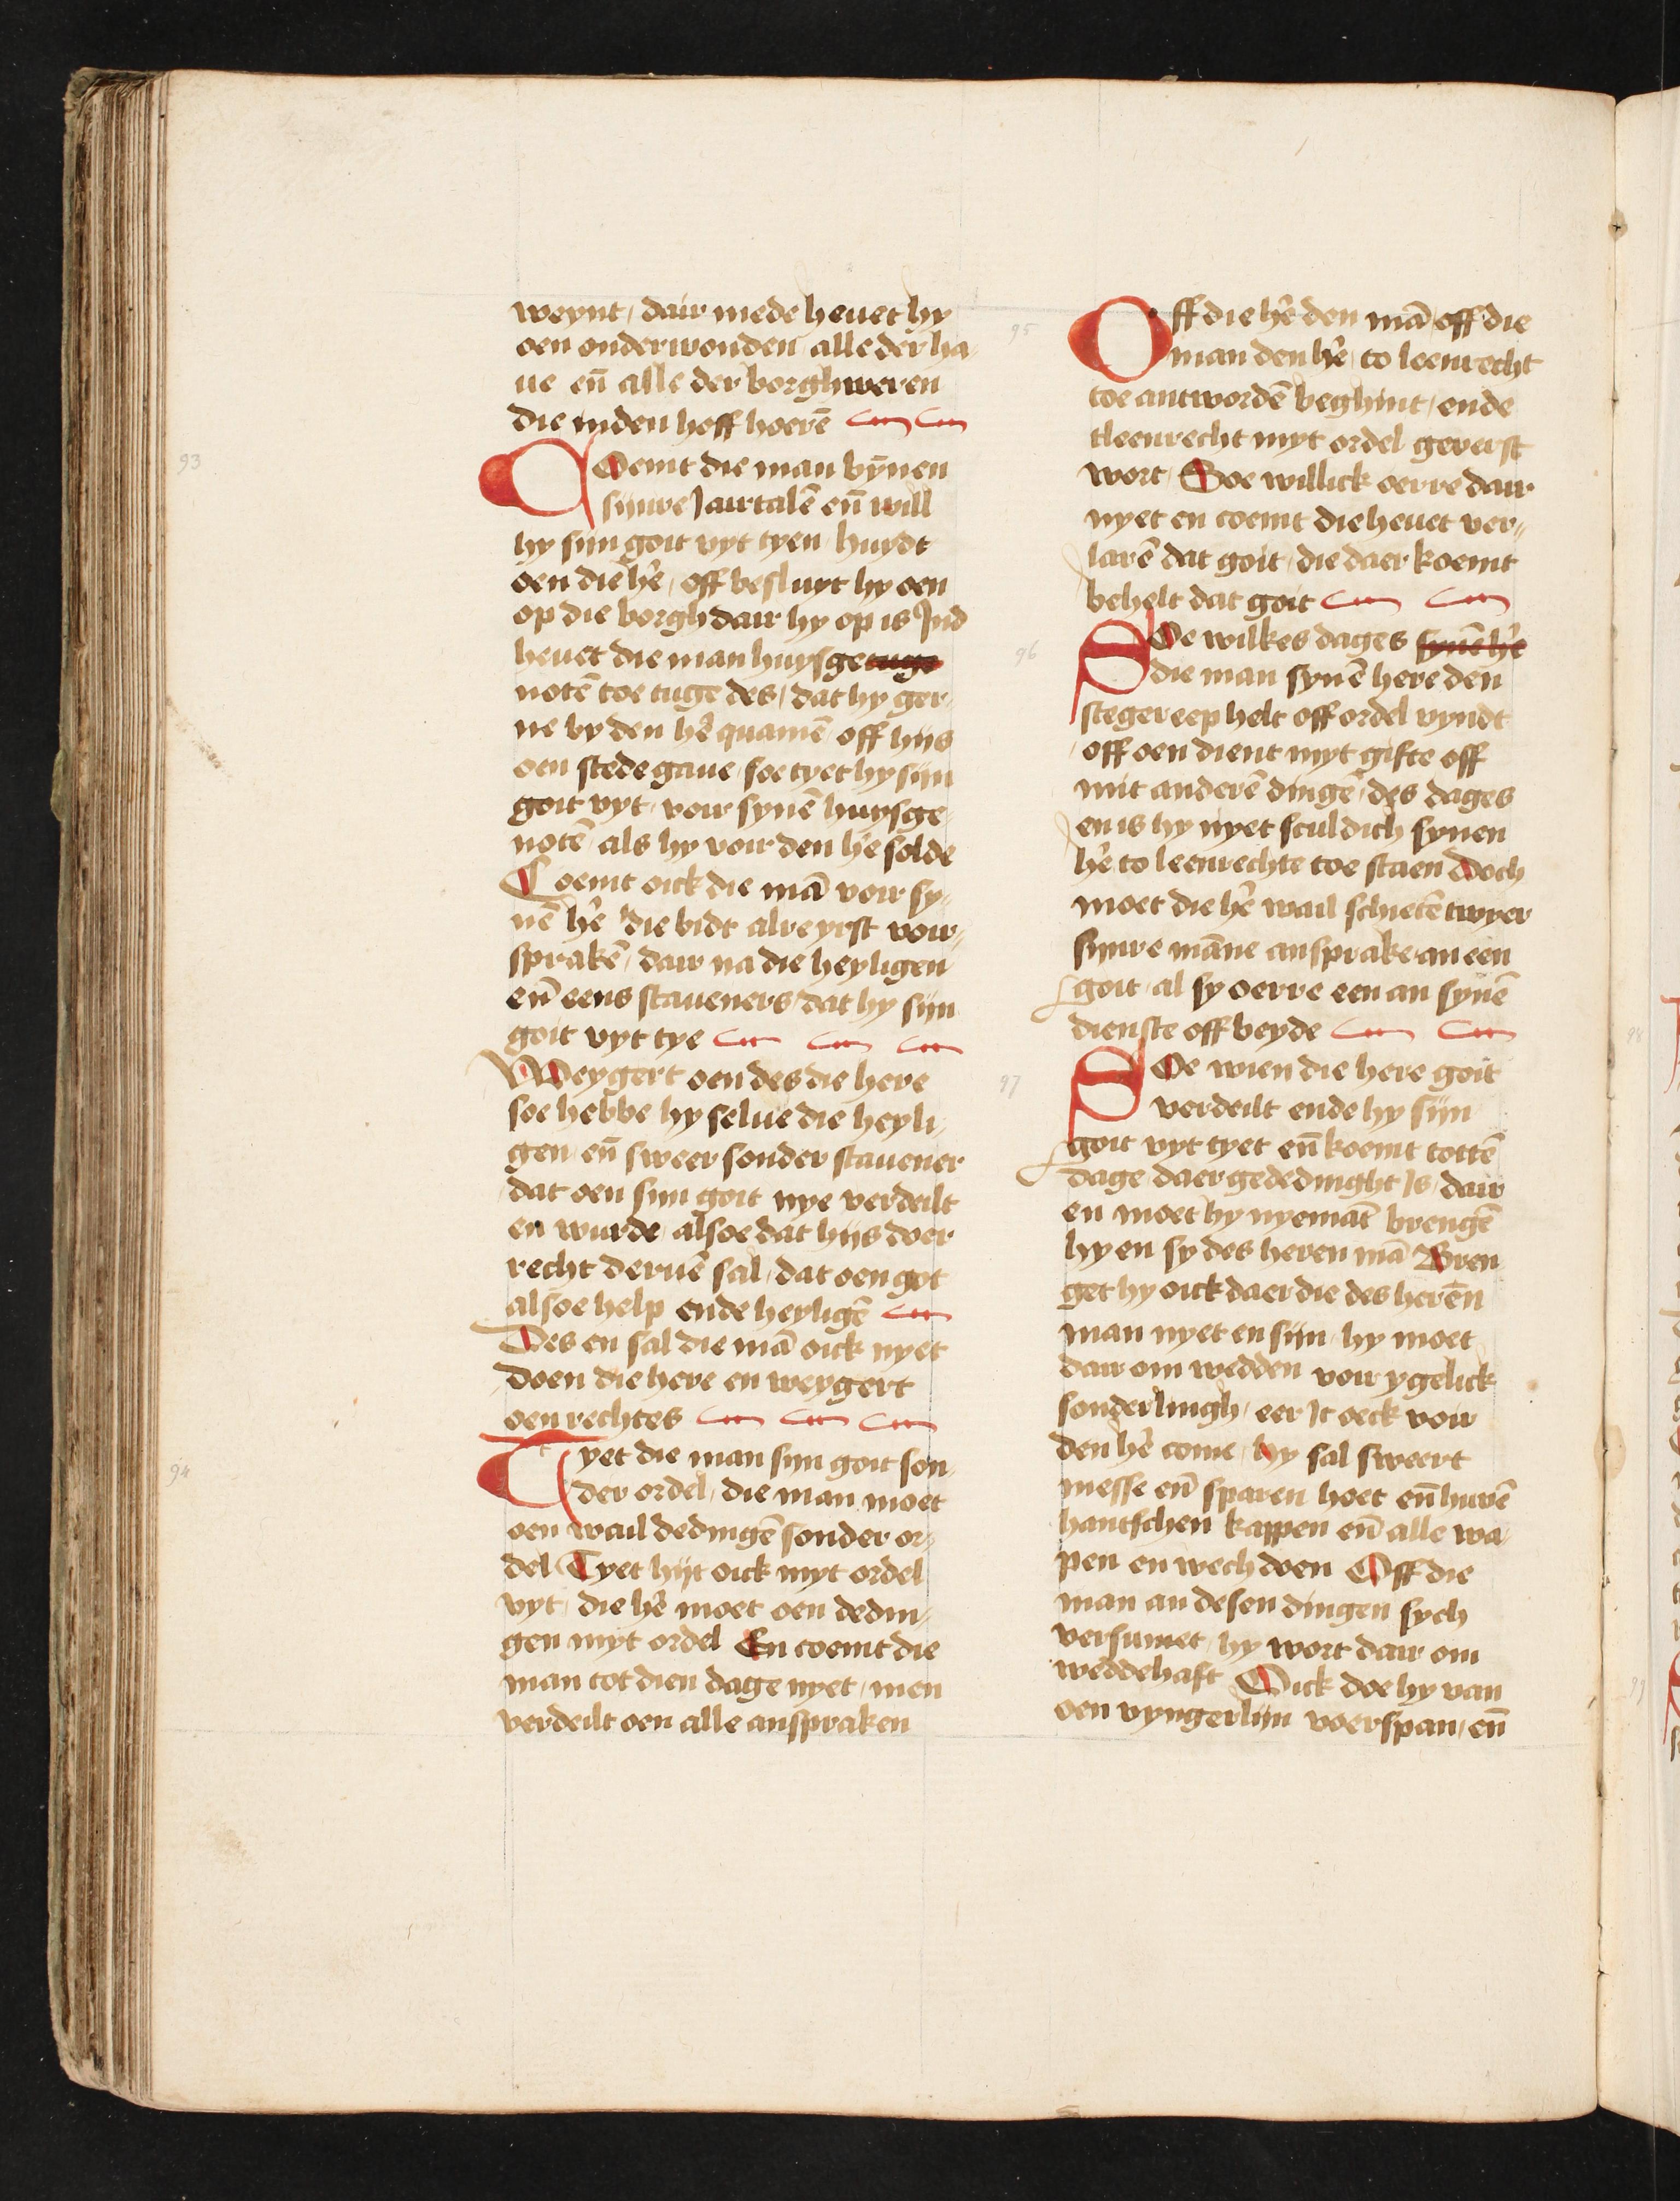 weynt / dair mede heuet hy
oen onderwonden alle der ha-
ue en̄ alle der borghweren
die inden hoff hoerē
93
Coemt die man bȳnen
sijnre Jairtalē en̄ will
hy sijn goit vyt tyen huydt
oen die hē / off besluyt hy oen
op die borgh dair hy op is Ind
heuet die man huysgetuge
notē toe tuge des / dat hy ger-
ne by den hē quamē off hijs
oen stede gaue / soe tyet hy sijn
goit vyt / voir synē huysge-
notē als hy voir den hē solde
Coemt oick die mā voir sy-
nē hē die bidt alreyrst voir-
sprakē / dair na die heyligen
en̄ eens staueners / dat hy sijn
goit vyt tye
Weygert oen des die here
soe hebbe hy selue die heyli-
gen / en̄ sweer sonder stauener
dat oen sijn goit nye verdeilt
en wurde / alsoe dat hijs doer
recht deruē sal / dat oen got
alsoe help ende heyligē
Des en sal die mā oick nyet
doen die here en weygert
oen rechtes
94
Tyet die man sijn goit son-
der ordel / die man moet
oen wail dedingē sonder or-
del Tyet hijt oick myt ordel
vyt / die hē moet oen dedin-
gen myt ordel En coemt die
man tot dien dage nyet / men
verdeilt oen alle anspraken
95
Off die hē den mā off die
man den hē / to leenrecht
toe antwordē beghint / ende
tleenrecht myt ordel geverst
wort / Soe willick oerre dair
nyet en coemt die heuet ver-
larē dat goit / die daer koemt
behelt dat goit
96
Soe wilkes dages synē hē
die man synē here den
stegereep helt off ordel vyndt
off oen dient myt gifte off
mit anderē dingē / des dages
en is hy nyet sculdich synen
hē to leenrechte toe staen Doch
moet die hē wail schietē twyer
sijnre māne ansprake an een
goit / al sy oerre een an synē
dienste off beyde
97
Soe wien die here goit
verdeilt ende hy sijn
goit vyt tyet en̄ koemt tottē
dage / daer gededinght is / dair
en moet hy nyemāt brengē
hy en sy des heren mā Bren
get hy oick daer die des herēn
man nyet en sijn / hy moet
dair om wedden voir ygelick
sonderlingh / eer it oeck voir
den hē come / hy sal sweert
messe en̄ sparen hoet en̄ huvē
hantschen kappen en̄ alle wa-
pen en wech doen Off die
man an desen dingen sych
versumet / hy wort dair om
weddehaft Oick doe hy van
oen vyngerlijn voerspan / en̄
98
99